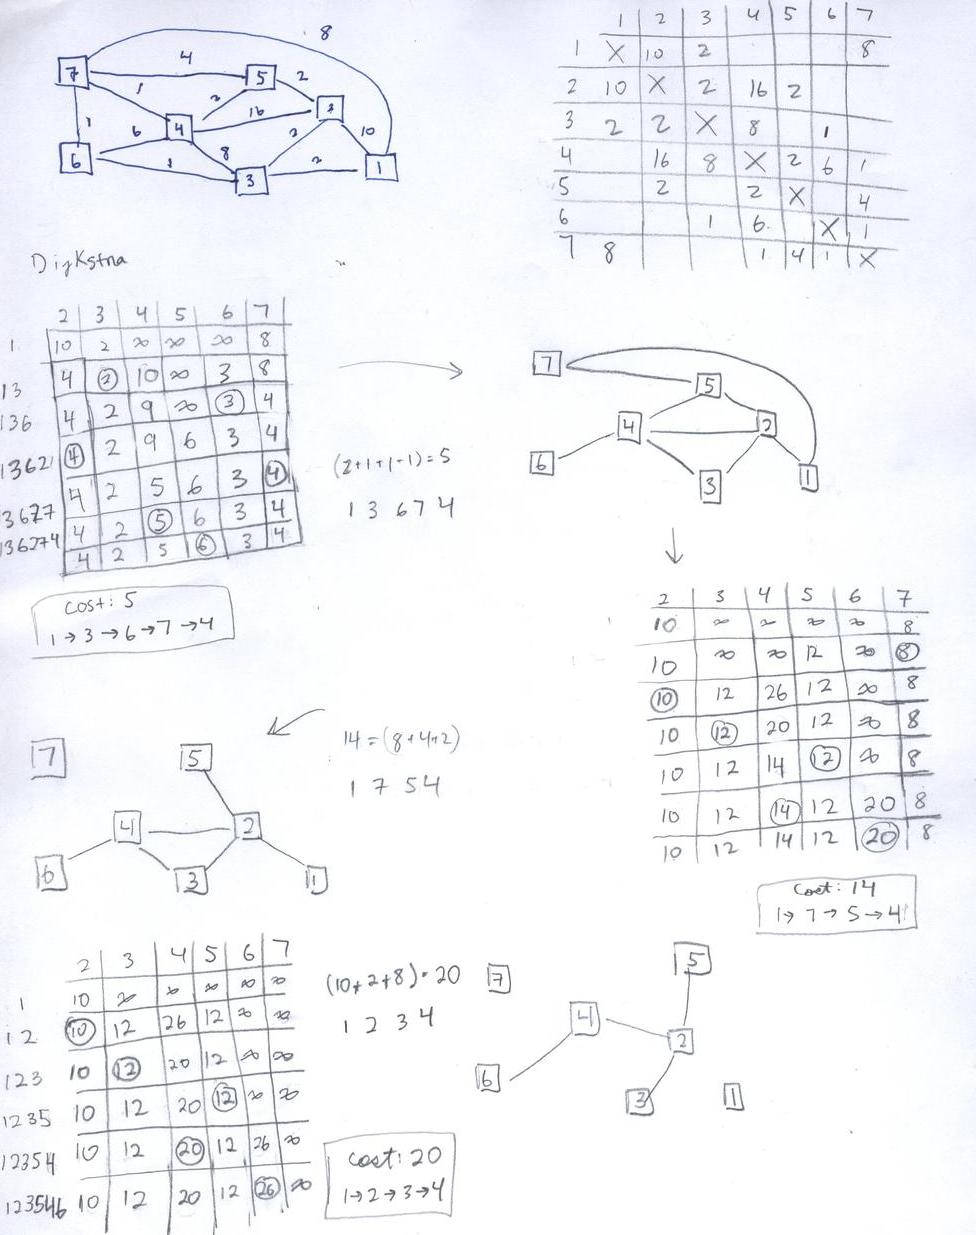 8
7 4 5 2
1 2 16 2
1 6 4 2 10
6 1 8 3 2 1
1 2 3 4 5 6 7
1 X 10 2 8
2 10 X 2 16 2
3 2 2 X 8 1
4 16 8 X 2 6 1
5 2 2 X 4
6 1 6 X 1
7 8 1 4 1 X
Dijkstra
2 3 4 5 6 7
1 10 2 ∞ ∞ ∞ 8
13 4 2 10 ∞ 3 8
136 4 2 9 ∞ 3 4
1362 4 2 9 6 3 4
13627 4 2 5 6 3 4
136274 4 2 5 6 3 4
4 2 5 6 3 4
(2+1+1+1)=5
1 3 6 7 4
Cost: 5
1→3→6→7→4
7
5
4 2
6 3 1
2 3 4 5 6 7
10 ∞ ∞ ∞ ∞ 8
10 ∞ ∞ 12 ∞ 8
10 12 26 12 ∞ 8
10 12 20 12 ∞ 8
10 12 14 12 ∞ 8
10 12 14 12 20 8
10 12 14 12 20 8
Cost: 14
1→7→5→4
14=(8+4+2)
1 7 5 4
7 5
4 2
6 3 1
2 3 4 5 6 7
1 10 ∞ ∞ ∞ ∞ ∞
12 10 12 26 12 ∞ ∞
123 10 12 20 12 ∞ ∞
1235 10 12 20 12 ∞ ∞
12354 10 12 20 12 26 ∞
123546 10 12 20 12 26 ∞
(10+2+8)=20
1 2 3 4
cost: 20
1→2→3→4
5
7
4 2
6 3 1